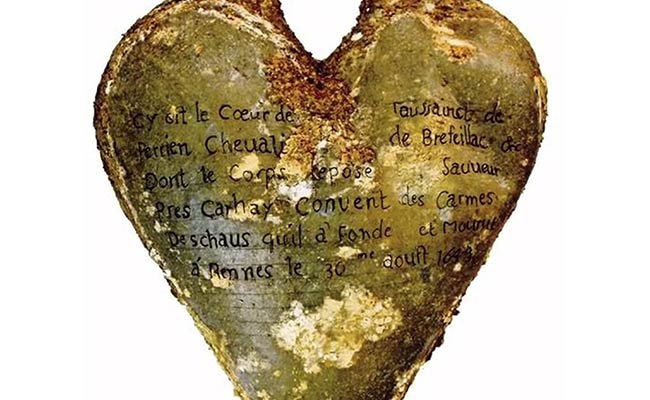 Cy Git le Cœur de Taussainct de
Perrien Cheuali de Brefeillac
Dont le Corps Repose a Sauueur
Pres Carhay Convent des Carmes
Deschaus quil à Fonde et Mourut
á Rennes le 30me aouſt 1649